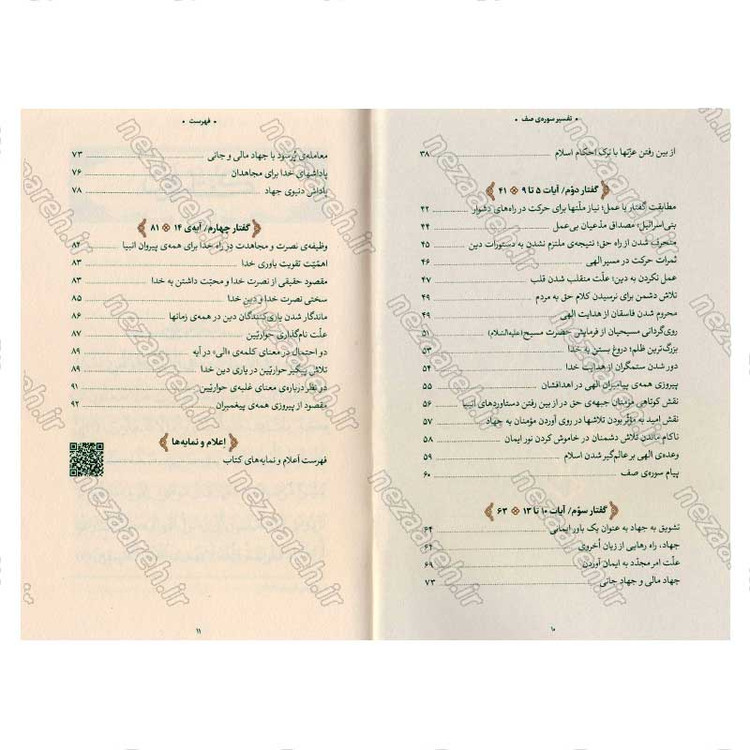 • تفسیر سوره‌ی صف •
از بین رفتن عزّتها با ترک احکام اسلام ۳۸
گفتار دوّم/ آیات ۵ تا ۹ ۴۱
مطابقت گفتار با عمل؛ نیاز ملّتها برای حرکت در راه‌های دشوار ۴۲
بنی‌اسرائیل؛ مصداق مدّعیان بی‌عمل ۴۴
منحرف شدن از راه حق؛ نتیجه‌ی ملتزم نشدن به دستورات دین ۴۵
ثمرات حرکت در مسیر الهی ۴۶
عمل نکردن به دین؛ علّت منقلب شدن قلب ۴۷
تلاش دشمن برای نرسیدن کلام حق به مردم ۴۹
محروم شدن فاسقان از هدایت الهی ۴۹
روی‌گردانی مسیحیان از فرمایش حضرت مسیح (علیه‌السّلام) ۵۱
بزرگ‌ترین ظلم؛ دروغ بستن به خدا ۵۳
دور شدن ستمگران از هدایت خدا ۵۴
پیروزی همه‌ی پیامبران الهی در اهدافشان ۵۵
نقش کوتاهی مؤمنان جبهه‌ی حق در از بین رفتن دستاوردهای انبیا ۵۶
نقش امید به مؤثّر بودن تلاشها در روی آوردن مؤمنان به جهاد ۵۷
ناکام ماندن تلاش دشمنان در خاموش کردن نور ایمان ۵۸
وعده‌ی الهی بر عالم‌گیر شدن اسلام ۵۹
پیام سوره‌ی صف ۶۰
گفتار سوّم/ آیات ۱۰ تا ۱۳ ۶۳
تشویق به جهاد به عنوان یک باور ایمانی ۶۴
جهاد، راه رهایی از زیان اُخروی ۶۴
علّت امر مجدّد به ایمان آوردن ۶۹
جهاد مالی و جهاد جانی ۷۳
۱۰
• فهرست •
معامله‌ی پُرسود با جهاد مالی و جانی ۷۳
پاداشهای خدا برای مجاهدان ۷۶
پاداش دنیوی جهاد ۷۸
گفتار چهارم/ آیه‌ی ۱۴ ۸۱
وظیفه‌ی نصرت و مجاهدت در راه خدا برای همه‌ی پیروان انبیا ۸۲
اهمّیّت تقویت باوری خدا ۸۳
مقصود حقیقی از نصرت خدا و محبّت داشتن به خدا ۸۳
سختی نصرت خدا و دین خدا ۸۵
ماندگار شدن یاری‌کنندگان دین در همه‌ی زمانها ۸۶
علّت نام‌گذاری حواریّین ۸۷
دو احتمال در معنای کلمه‌ی «الی» در آیه ۸۹
تلاش پیگیر حواریّین در یاری دین خدا ۸۹
دو نظر درباره‌ی معنای غلبه‌ی حواریّین ۹۱
مقصود از پیروزی همه‌ی پیغمبران ۹۲
اعلام و نمایه‌ها
فهرست اَعلام و نمایه‌های کتاب
۱۱
nezaareh.ir